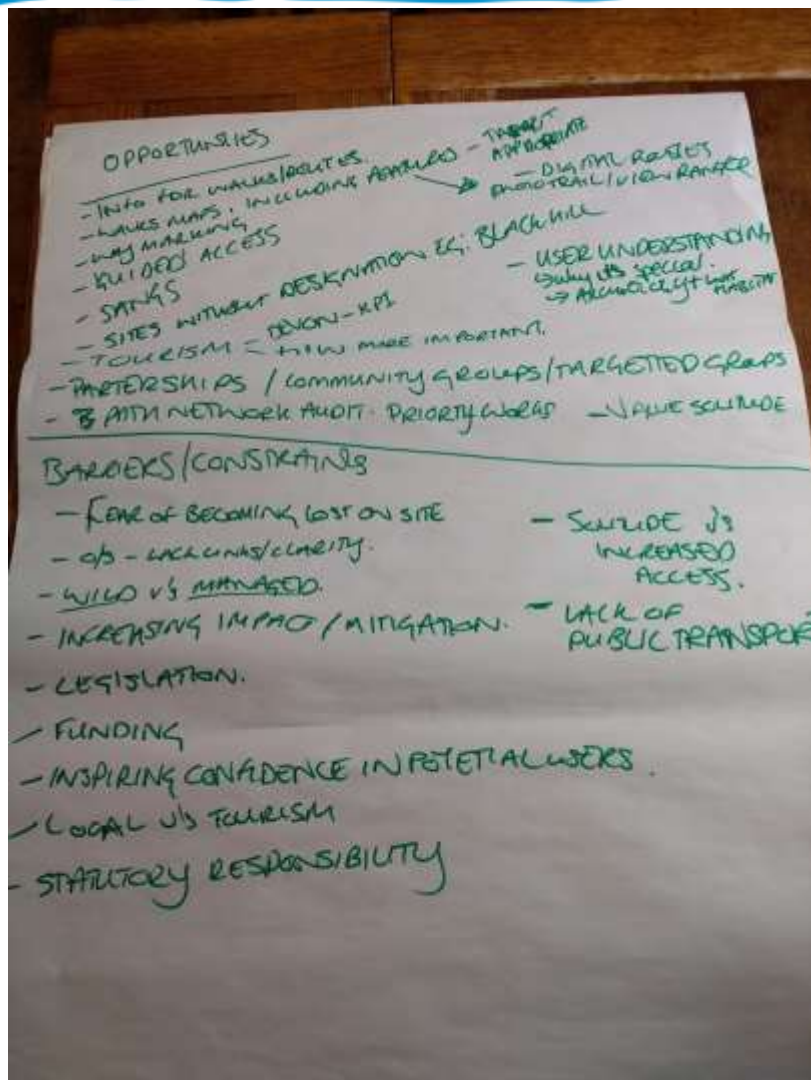 OPPORTUNITIES
- INFO FOR WALKS/ROUTES.
- WALKS MAPS, INCLUDING FEATURES - TARGET APPROPRIATE
- DIGITAL ROUTES
PHOTOTRAIL/VIEWRANGER
- WAY MARKING
- GUIDED ACCESS
- SANGS
- SITES WITHOUT DESIGNATION EG: BLACKHILL
- USER UNDERSTANDING
↳ why it's special.
→
- TOURISM = DEVON - KPI
- HOW MADE IMPORTANT.
- PARTERSHIPS / COMMUNITY GROUPS/TARGETTED GROUPS
- PATH NETWORK AUDIT. PRIORTY WORKS - VALUE SOLITUDE
BARRIERS/CONSTRAINTS
- FEAR OF BECOMING LOST ON SITE
- LACK LINKS/CLARITY.
- WILD V'S MANAGED.
- INCREASING IMPACT/MITIGATION.
- LEGISLATION.
- FUNDING
- INSPIRING CONFIDENCE IN POTETIAL USERS.
- LOCAL V'S TOURISM
- STATUTORY RESPONSIBILITY
- SOLITUDE V'S
INCREASED
ACCESS.
- LACK OF
PUBLIC TRANSPORT